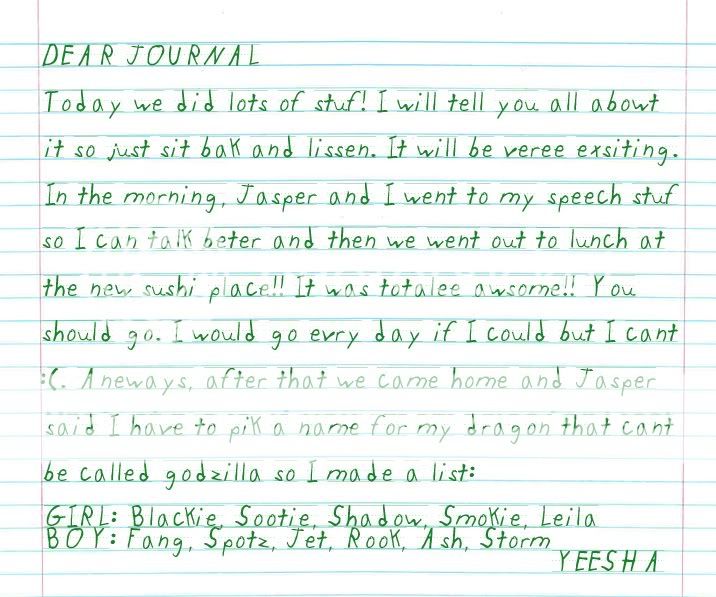 DEAR JOURNAL
Today we did lots of stuf! I will tell you all abowt
it so just sit bak and lissen. It will be veree exsiting.
In the morning, Jasper and I went to my speech stuf
so I can talk beter and then we went out to lunch at
the new sushi place!! It was totalee awsome!! You
should go. I would go evry day if I could but I cant
:(. Aneways, after that we came home and Jasper
said I have to pik a name for my dragon that cant
be called godzilla so I made a list:
GIRL: Blackie, Sootie, Shadow, Smokie, Leila
BOY: Fang, Spotz, Jet, Rook, Ash, Storm
YEESHA